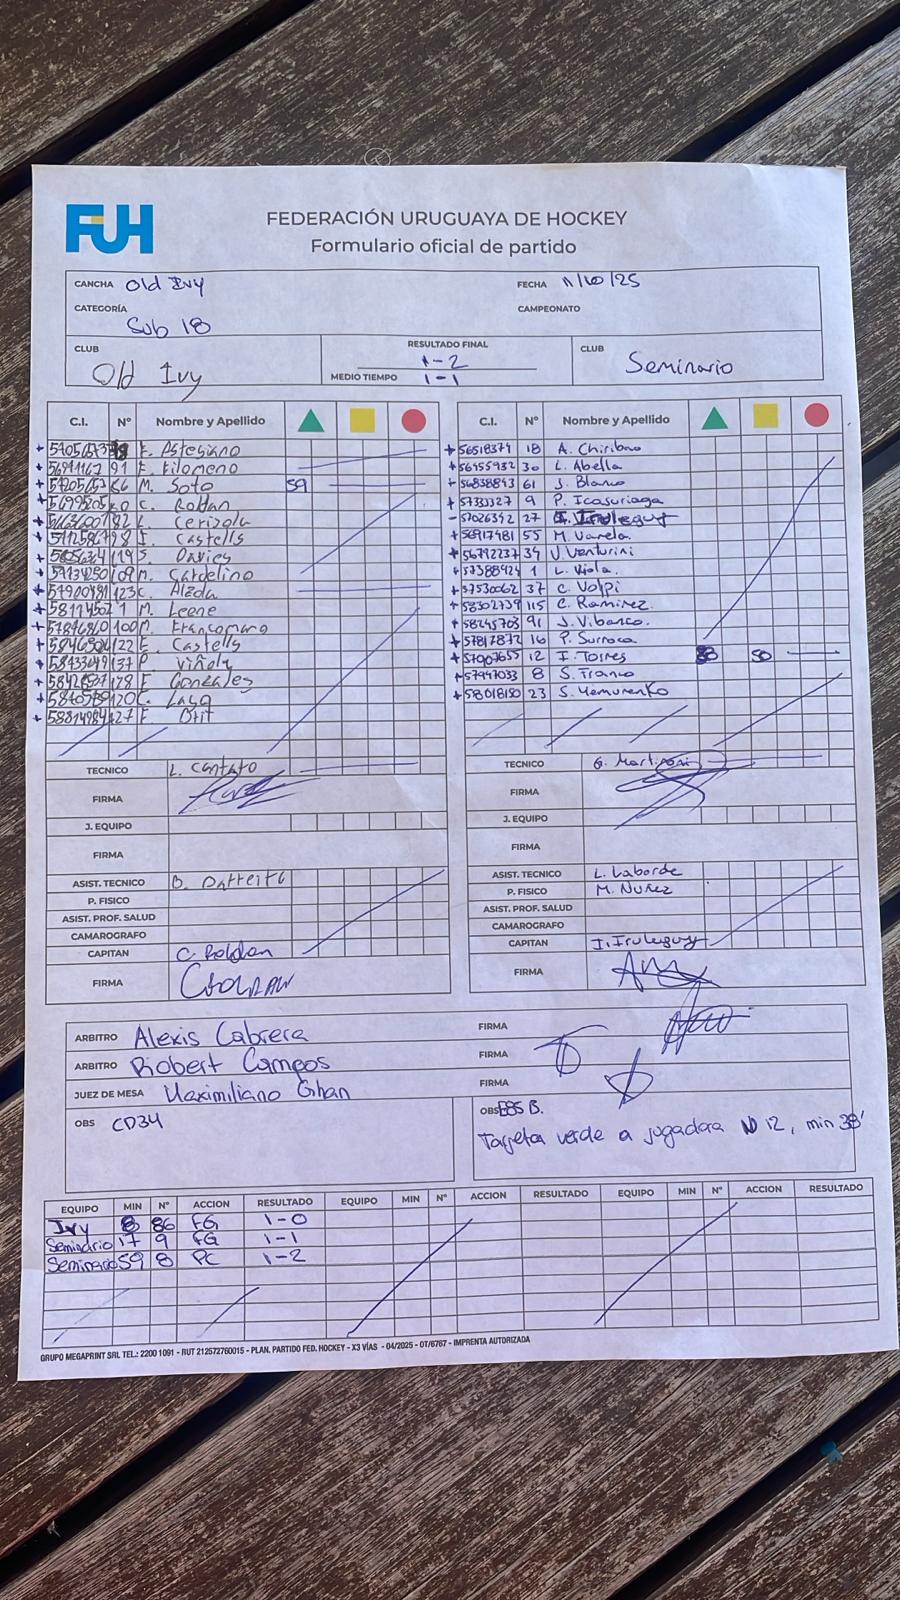 FUH
FEDERACIÓN URUGUAYA DE HOCKEY
Formulario oficial de partido
CANCHA Old Ivy
FECHA 11/10/25
CATEGORÍA Sub 18
CAMPEONATO
CLUB Old Ivy
RESULTADO FINAL 1-2
MEDIO TIEMPO 1-1
CLUB Seminario
C.I. Nº Nombre y Apellido
Astesiano
91 F. Filomeno
M. Soto 59
C. Roldan
Cerizola
Castells
S. Davies
M. Gardelino
123 C. Alzda
1 M. Leone
100 M. Francomano
122 E. Castells
137 P. Viñoly
128 F. Gonzales
120 C. Lago
127 F.
TECNICO L. Cantato
FIRMA
J. EQUIPO
FIRMA
ASIST. TECNICO B. Barreito
P. FISICO
ASIST. PROF. SALUD
CAMAROGRAFO
CAPITAN C. Roldan
FIRMA
C.I. Nº Nombre y Apellido
+ 56518374 18 A. Chiribao
+ 56455932 30 L. Abella
+ 56838843 61 J. Blanco
+ 5733327 9 P. Icasuriaga
- 57026342 27 I. Iruleguy
+ 56917481 55 M. Varela
+ 56792237 34 V. Venturini
+ 57388424 1 L. Viola
+ 57530062 37 C. Volpi
+ 58302739 115 C. Ramirez
+ 58245703 91 J. Vibanco
+ 57817872 16 P. Surroca
+ 57907655 12 I. Torres 38 50
+ 57947033 8 S. Franco
+ 58018150 23 S. Yemurenko
TECNICO G. Martiponi
FIRMA
J. EQUIPO
FIRMA
ASIST. TECNICO L. Laborde
P. FISICO M. Nuñez
ASIST. PROF. SALUD
CAMAROGRAFO
CAPITAN I. Iruleguy
FIRMA
ARBITRO Alexis Cabrera FIRMA
ARBITRO Robert Campos FIRMA
JUEZ DE MESA Maximiliano Ghan FIRMA
OBS CD34
OBS B.
Tarjeta verde a jugadora N 12, min 38'
EQUIPO MIN Nº ACCION RESULTADO EQUIPO MIN Nº ACCION RESULTADO EQUIPO MIN Nº ACCION RESULTADO
Ivy 8 86 FG 1-0
Seminario 17 9 FG 1-1
Seminario 59 8 PC 1-2
GRUPO MEGAPRINT SRL TEL.: 2200 1091 - RUT 212572760015 - PLAN. PARTIDO FED. HOCKEY - X3 VÍAS - 04/2025 - OT/6767 - IMPRENTA AUTORIZADA